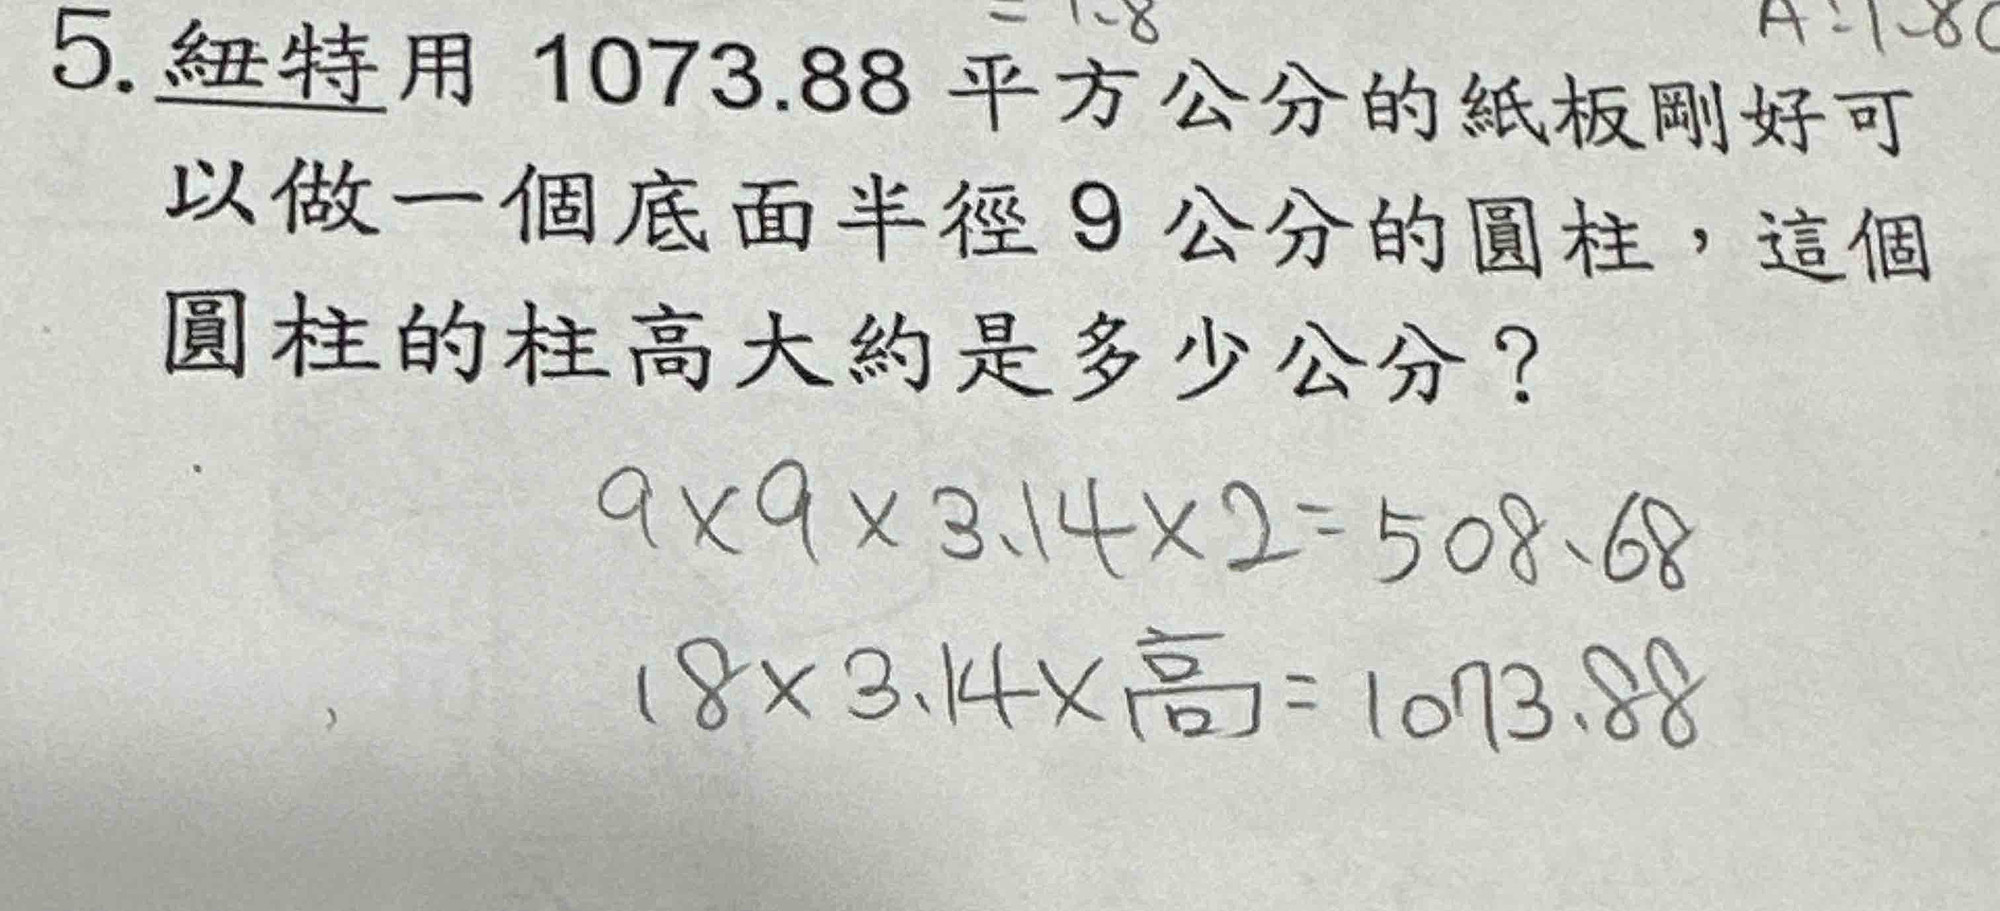 = 1.8
A:1.8
5. 紐特用 1073.88 平方公分的紙板剛好可
以做一個底面半徑 9 公分的圓柱，這個
圓柱的柱高大約是多少公分？
9×9×3.14×2=508.68
18×3.14×高=1073.88